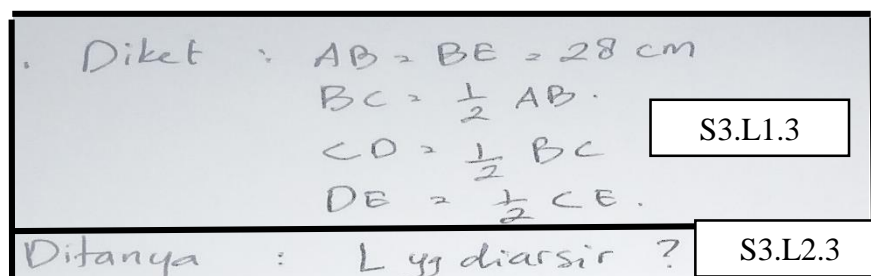 . Diket : AB = BE = 28 cm
BC = 1/2 AB.
S3.L1.3
CD = 1/2 BC
DE = 1/2 CE.
Ditanya : L yg diarsir ?
S3.L2.3